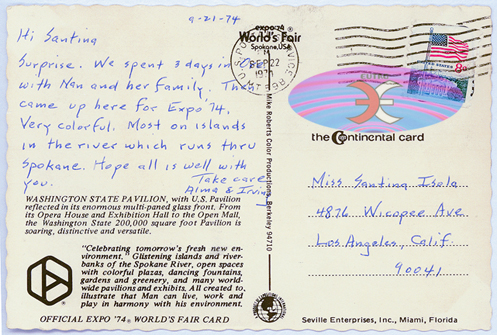 9-21-74
Hi Santina
Surprise. We spent 3 days in
with Nan and her family. They
came up here for Expo '74.
Very colorful. Most on islands
in the river which runs thru
Spokane. Hope all is well with
you. Take care
Alma & Irving
WASHINGTON STATE PAVILION, with U.S. Pavilion
reflected in its enormous multi-paned glass front. From
its Opera House and Exhibition Hall to the Open Mall,
the Washington State 200,000 square foot Pavilion is
soaring, distinctive and versatile.
"Celebrating tomorrow's fresh new en-
vironment." Glistening islands and river-
banks of the Spokane River, open spaces
with colorful plazas, dancing fountains,
gardens and greenery, and many world-
wide pavilions and exhibits. All created to,
illustrate that Man can live, work and
play in harmony with his environment.
OFFICIAL EXPO '74® WORLD'S FAIR CARD
expo '74®
World's Fair
Spokane, USA
SEP 22
Mike Roberts Color Productions, Berkeley 94710
8¢
the Continental card
Miss Santina Isola
4876 Wicopee Ave.
Los Angeles, Calif.
90041
Seville Enterprises, Inc., Miami, Florida